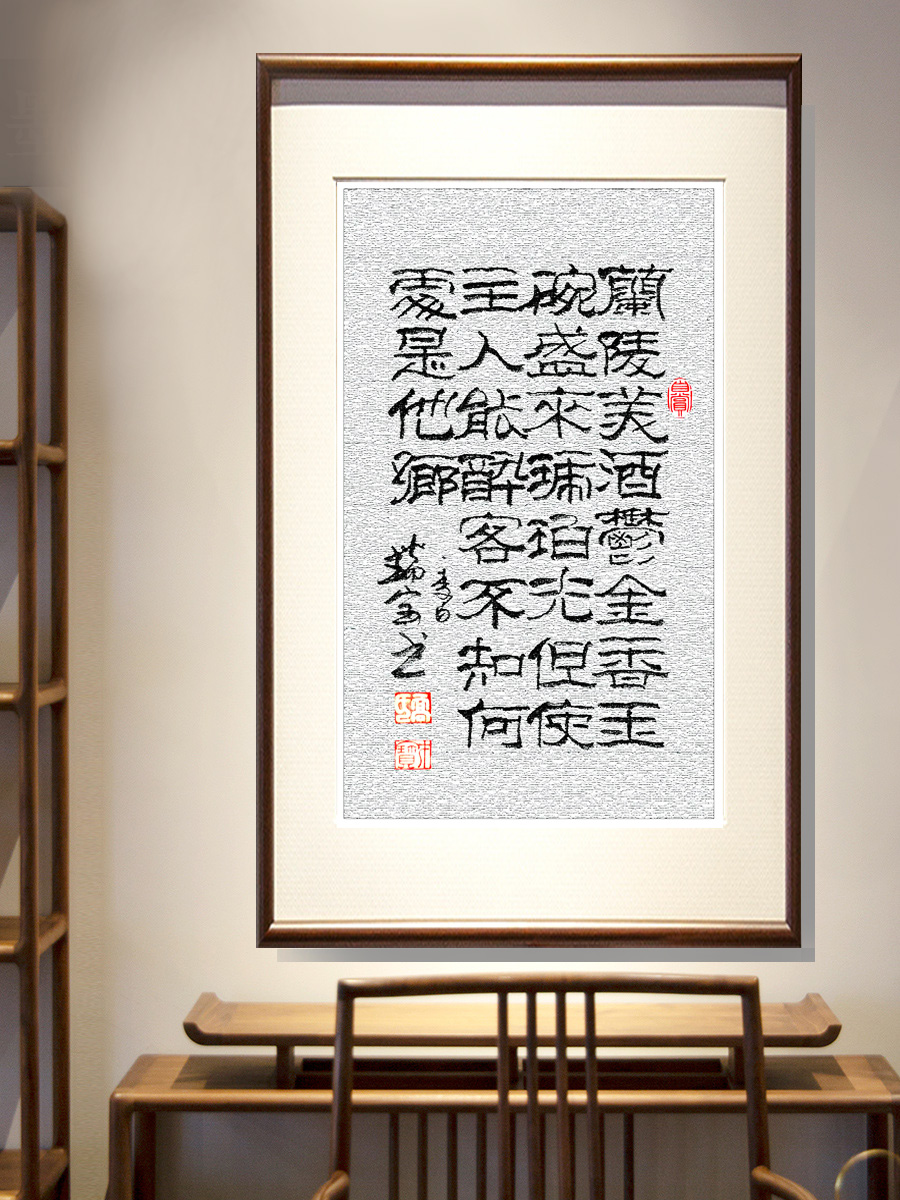 蘭陵美酒鬱金香玉
碗盛來琥珀光但使
主人能醉客不知何
處是他鄉
李白
书